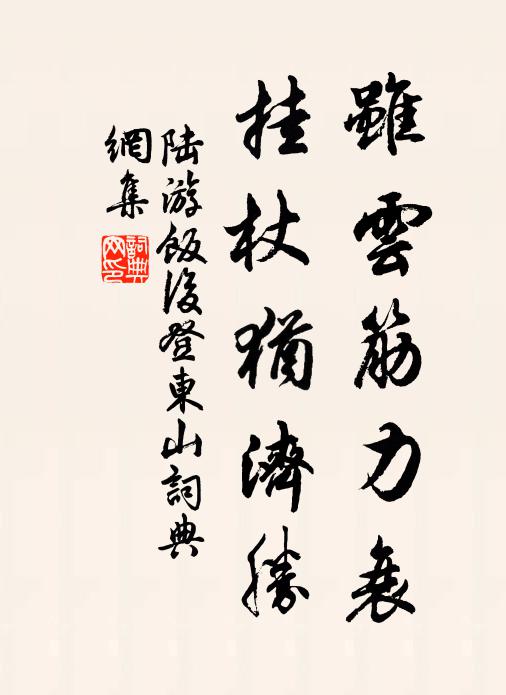 雖雲筋力衰
挂杖猶濟勝
陆游飯後登東山詞典
網集
詞典
网印